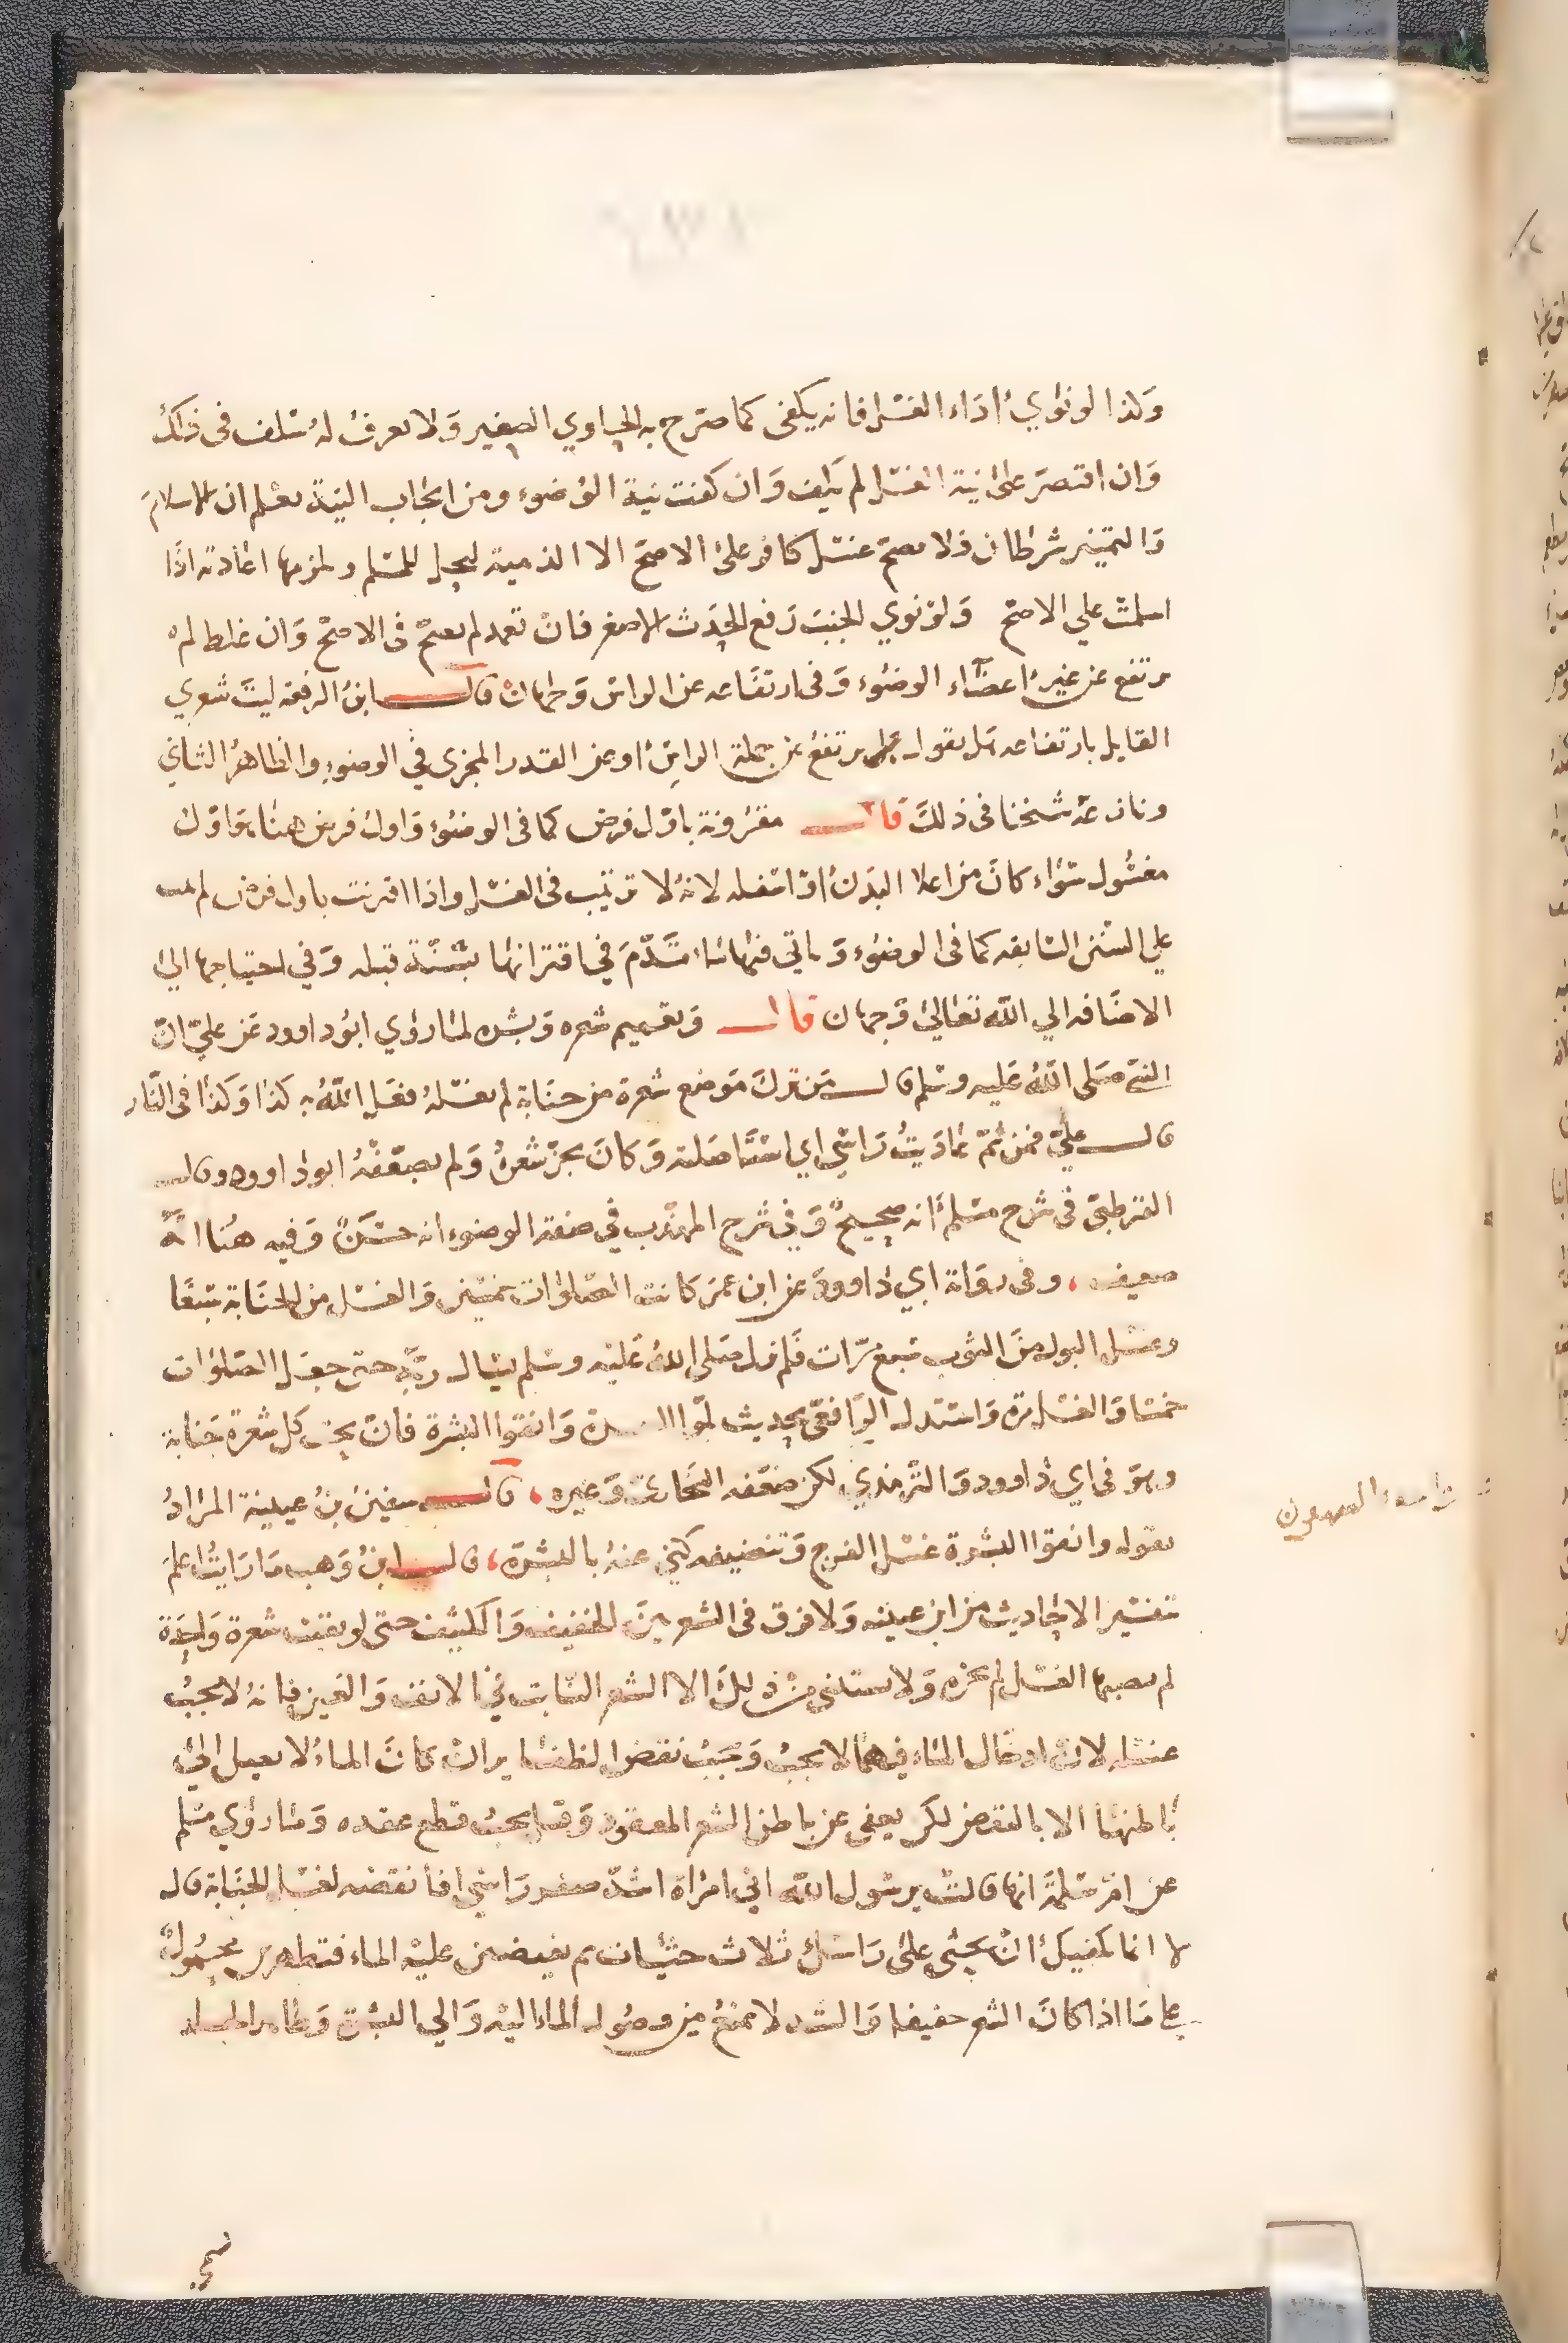 وكذا لو نوي اداء الغسل فانه يكفى كما صرح به الحاوي الصغير ولا يعرف له سلف فى ذلك
وان اقتصر على نية الغسل لم يكف وان كفت نية الوضوء ومن ايجاب النية يعلم ان الاسلام
والتمييز شرطان فلا يصح غسل كافر على الاصح الا الذمية لتحل للمسلم ويلزمها اعادته اذا
اسلمت علي الاصح ولو نوي الجنب رفع الحدث الاصغر فان تعمد لم يصح فى الاصح وان غلط لم
يرتفع عن غير اعضاء الوضوء وفى ارتفاعه عن الراس وجهان قال ابن الرفعه ليت شعري
القايل بارتفاعه هل يقول يرتفع عن جملة الراس او عن القدر المجزى في الوضوء والظاهر الثاني
ونازعه شيخنا فى ذلك قال مقرونة باول فرض كما فى الوضوء واول فرض هنا هو اول
مغسول سواء كان من اعلا البدن او اسفله لانه لا ترتيب فى الغسل واذا اقترنت باول فرض لم يثب
علي السنن السابقه كما فى الوضوء وياتي فيها ما تقدم في اقترانها بسنة قبله وفي احتياجها الي
الاضافه الي الله تعالى وجهان قال وتعميم شعره وبشره لما روي ابو داوود عن علي ان
النبي صلى الله عليه وسلم قال من ترك موضع شعرة من جنابة لم يغسله فعل الله به كذا وكذا فى النار
قال علي فمن ثم عاديت راسي اي استاصلته وكان يجز شعره ولم يضعفه ابو داوود وقال
القرطبى فى شرح مسلم انه صحيح وفي شرح المهذب في صفة الوضوء انه حسن وفيه هنا انه
ضعيف وفى رواة ابي داوود عن ابن عمر كانت الصلوات خمسين والغسل من الجنابة سبعا
وغسل البول من الثوب سبع مرات فلم يزل صلى الله عليه وسلم يسال ربه حتى جعل الصلوات
خمسا والغسل مرة واستدل الرافعى بحديث بلوا الشعرة وانقوا البشرة فان تحت كل شعرة جنابة
وهو فى ابي داوود والترمذي لكن ضعفه البخارى وغيره قال سفين بن عيينة المراد
بقوله وانقوا البشرة غسل الفرج وتنظيفه كني عنه بالبشرة قال ابن وهب ما رايت اعلم
بتفسير الاحاديث من ابن عيينه ولا فرق فى الشعر بين الخفيف والكثيف حتى لو بقيت شعرة واحدة
لم يصبها الغسل لم يجزه ولا يستثنى من ذلك الا الشعر النابت في الانف والعين فانه لا يجب
غسله لان ادخال الماء فيهما لا يجب ويجب نقض الظفاير ان كان الماء لا يصل الي
باطنها الا بالنقض لكن يعفى عن باطن الشعر المعقود وقيل يجب قطع عقده وما روي مسلم
عن ام سلمة انها قالت يرسول الله اني امراة اشد ضفر راسي افانقضه لغسل الجنابة قال
لا انما يكفيك ان تحثى على راسك ثلاث حثيات ثم تفيضين عليه الماء فتطهرى محمول
على ما اذا كان الشعر خفيفا والشد لا يمنع من وصول الماء اليه والي البشرة وظاهر الجلد